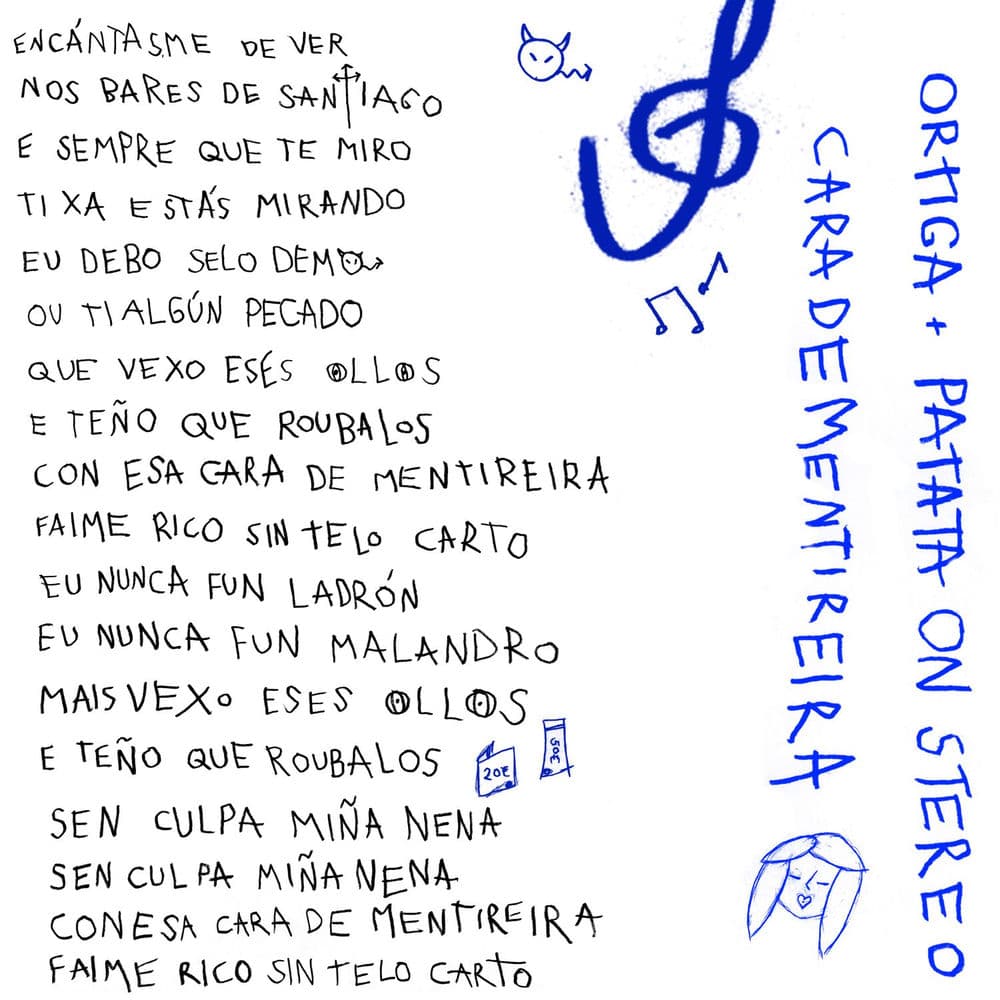 ENCÁNTASME DE VER
NOS BARES DE SANTIAGO
E SEMPRE QUE TE MIRO
TI XA ESTÁS MIRANDO
EU DEBO SELO DEMO
OU TI ALGÚN PECADO
QUE VEXO ESÉS OLLOS
E TEÑO QUE ROUBALOS
CON ESA CARA DE MENTIREIRA
FAIME RICO SIN TELO CARTO
EU NUNCA FUN LADRÓN
EU NUNCA FUN MALANDRO
MAIS VEXO ESES OLLOS
E TEÑO QUE ROUBALOS
20€
50€
SEN CULPA MIÑA NENA
SEN CULPA MIÑA NENA
CON ESA CARA DE MENTIREIRA
FAIME RICO SIN TELO CARTO
CARA DE MENTIREIRA
ORTIGA + PATATA ON STEREO